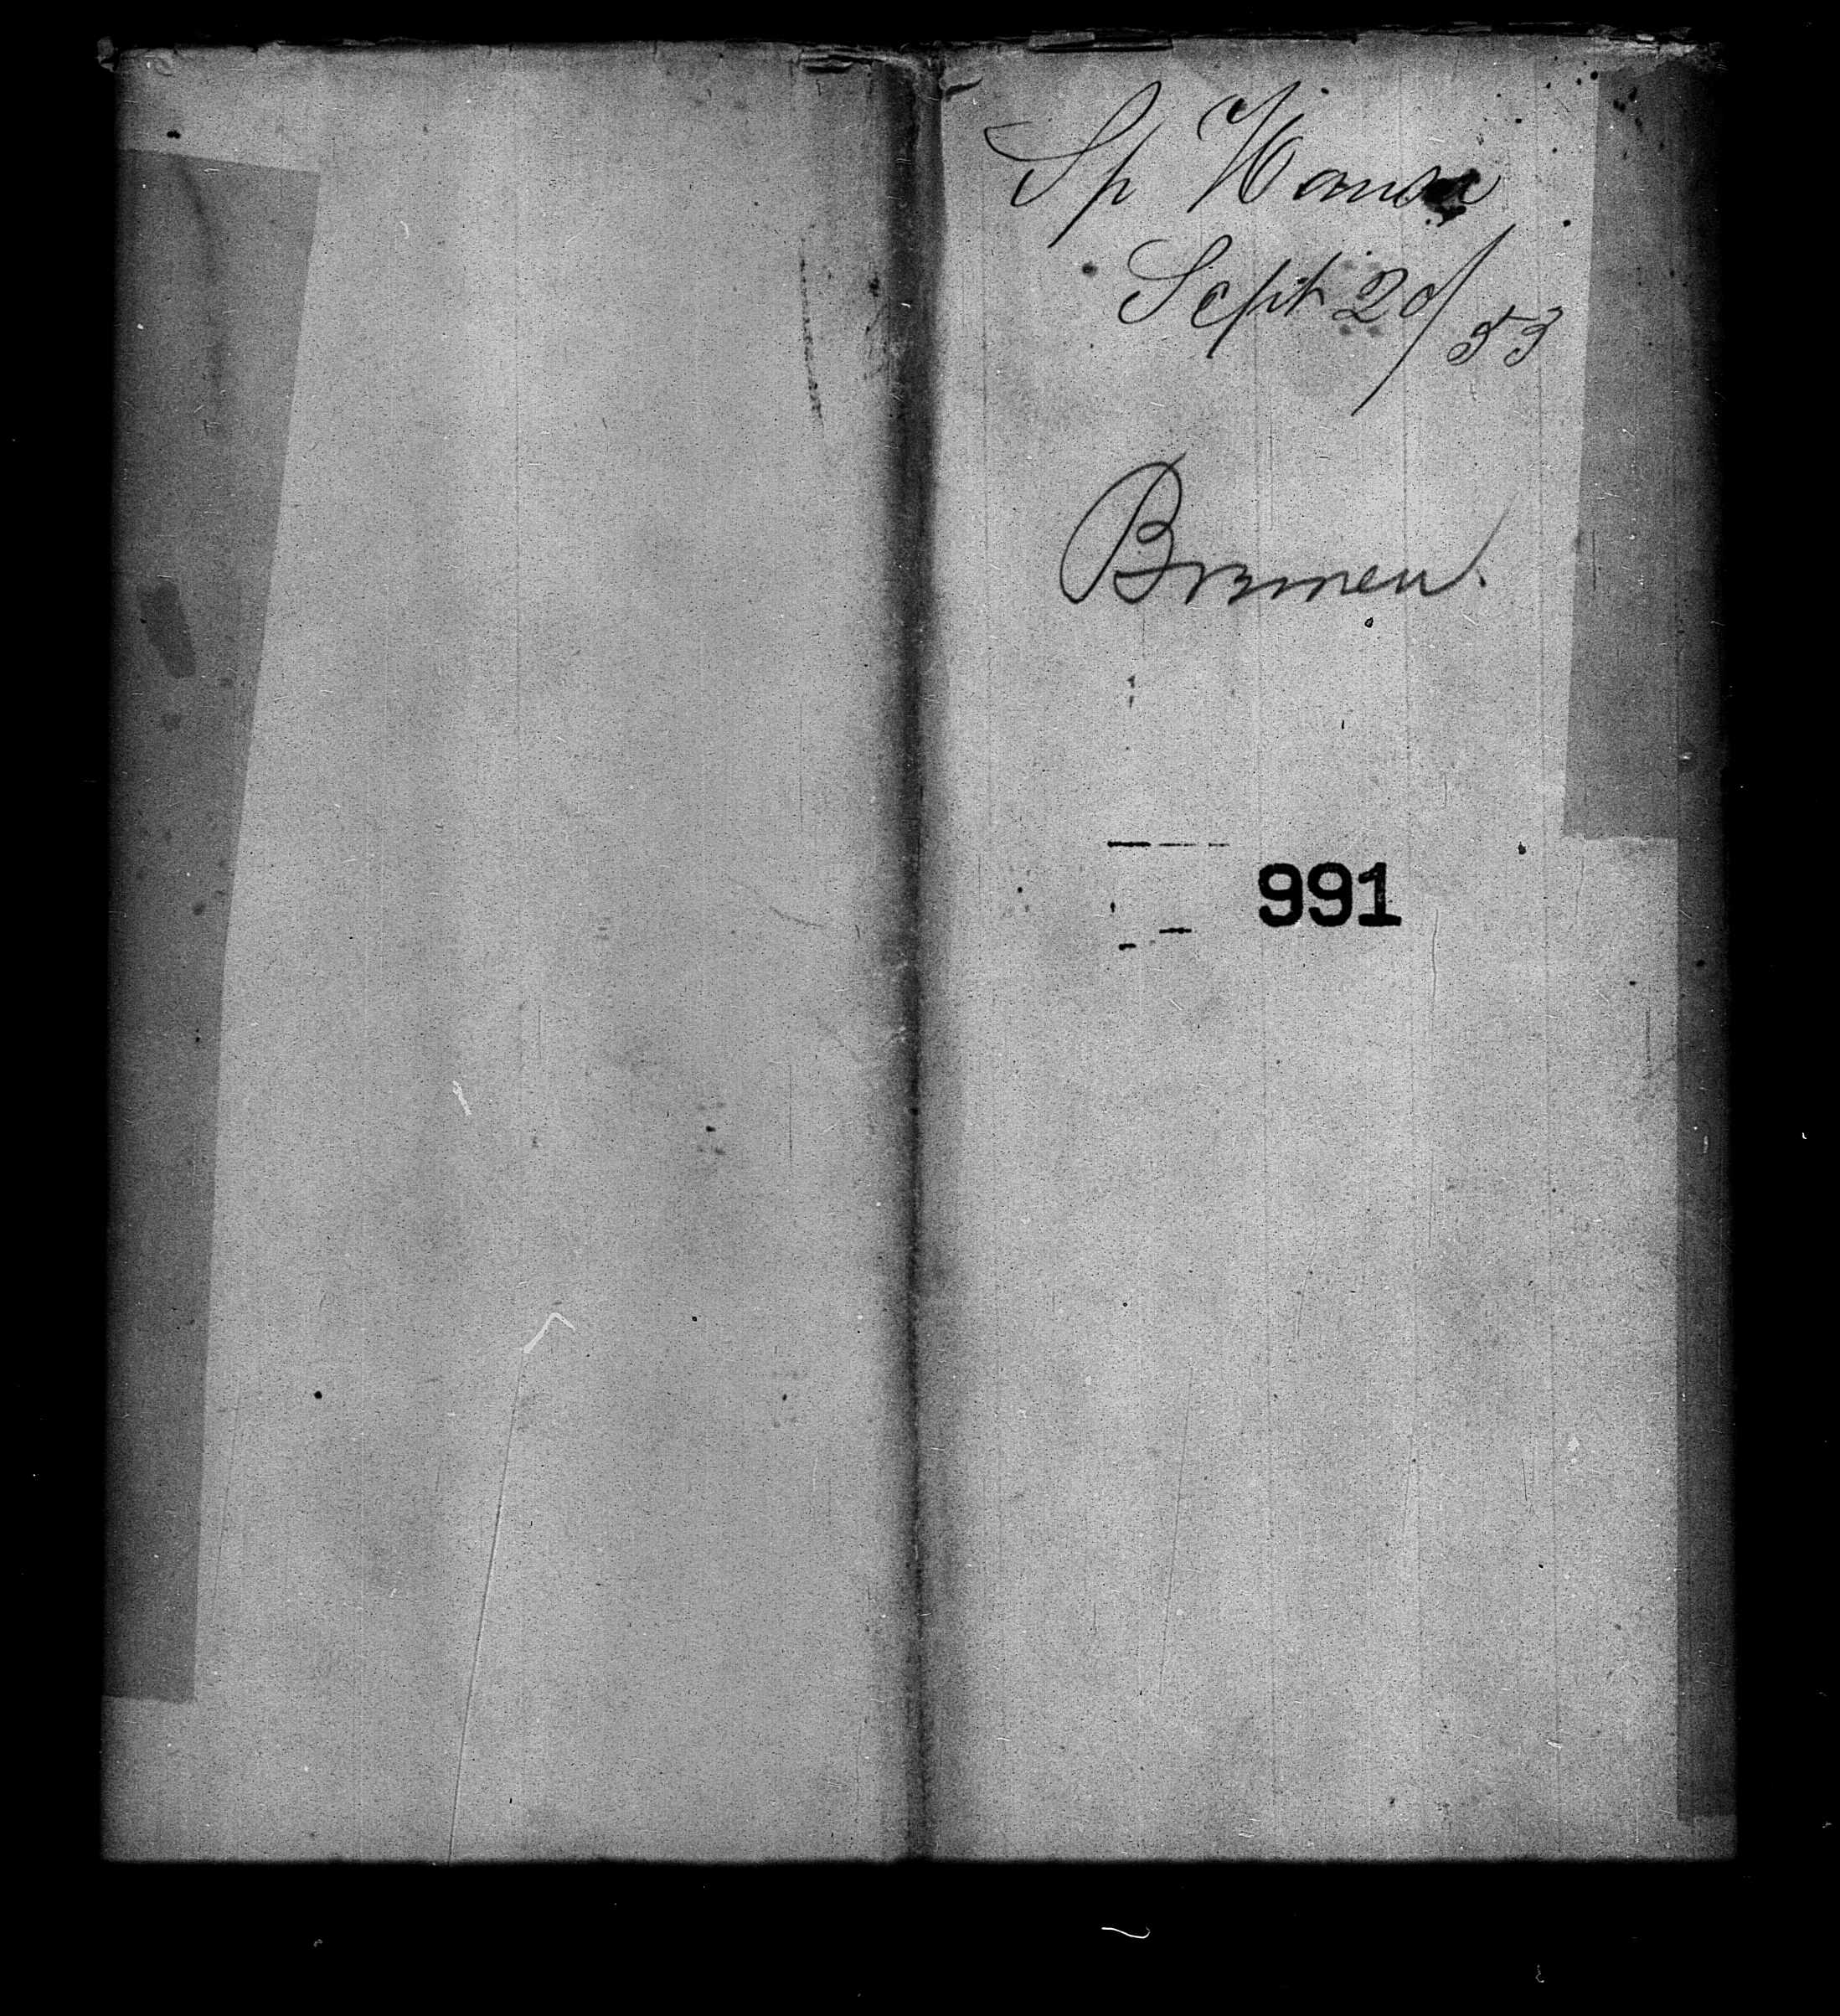 Sp Hansa
Sept 20/53
Bremen.
991